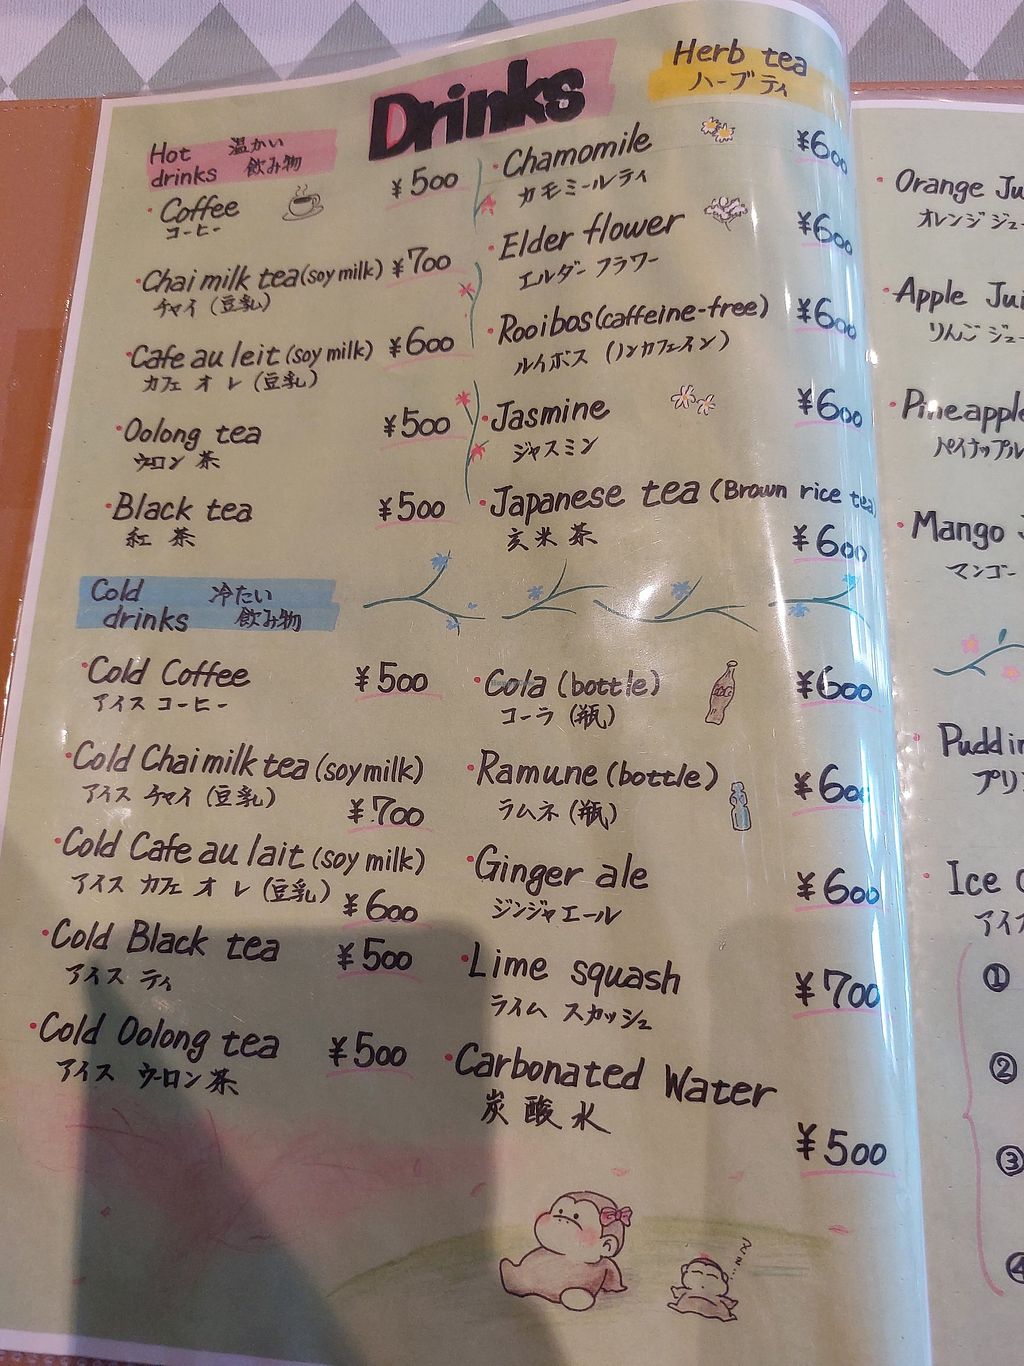 Drinks
Hot 温かい
drinks 飲み物
・Coffee ¥500
コーヒー
・Chai milk tea (soy milk) ¥700
チャイ (豆乳)
・Cafe au leit (soy milk) ¥600
カフェ オ レ (豆乳)
・Oolong tea ¥500
ウーロン 茶
・Black tea ¥500
紅 茶
Herb tea
ハーブ ティ
・Chamomile ¥600
カモミールティ
・Elder flower ¥600
エルダー フラワー
・Rooibos (caffeine-free) ¥600
ルイボス (ノンカフェイン)
・Jasmine ¥600
ジャスミン
・Japanese tea (Brown rice tea)
玄米茶 ¥600
Cold 冷たい
drinks 飲み物
・Cold Coffee ¥500
アイス コーヒー
・Cold Chai milk tea (soy milk)
アイス チャイ (豆乳) ¥700
・Cold Cafe au lait (soy milk)
アイス カフェ オ レ (豆乳) ¥600
・Cold Black tea ¥500
アイス ティ
・Cold Oolong tea ¥500
アイス ウーロン茶
・Cola (bottle) ¥600
コーラ (瓶)
・Ramune (bottle) ¥600
ラムネ (瓶)
・Ginger ale ¥600
ジンジャエール
・Lime squash ¥700
ライム スカッシュ
・Carbonated Water
炭酸水
¥500
・Orange
オレンジ
・Apple
りんご
・Pineapple
パイナップル
・Mango
マンゴー
・Ice
アイス
①
②
③
④